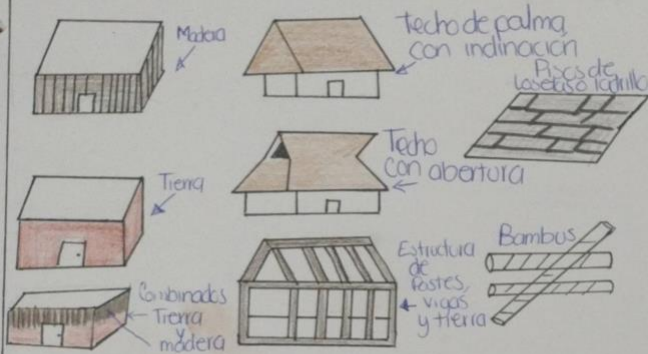 Madera
Tierra
Combinados
Tierra
y
madera
Techo de palma
con inclinación
Techo
con abertura
Estructura
de
Postes,
vigas
y tierra
Pisos de
losetas o ladrillo
Bambus